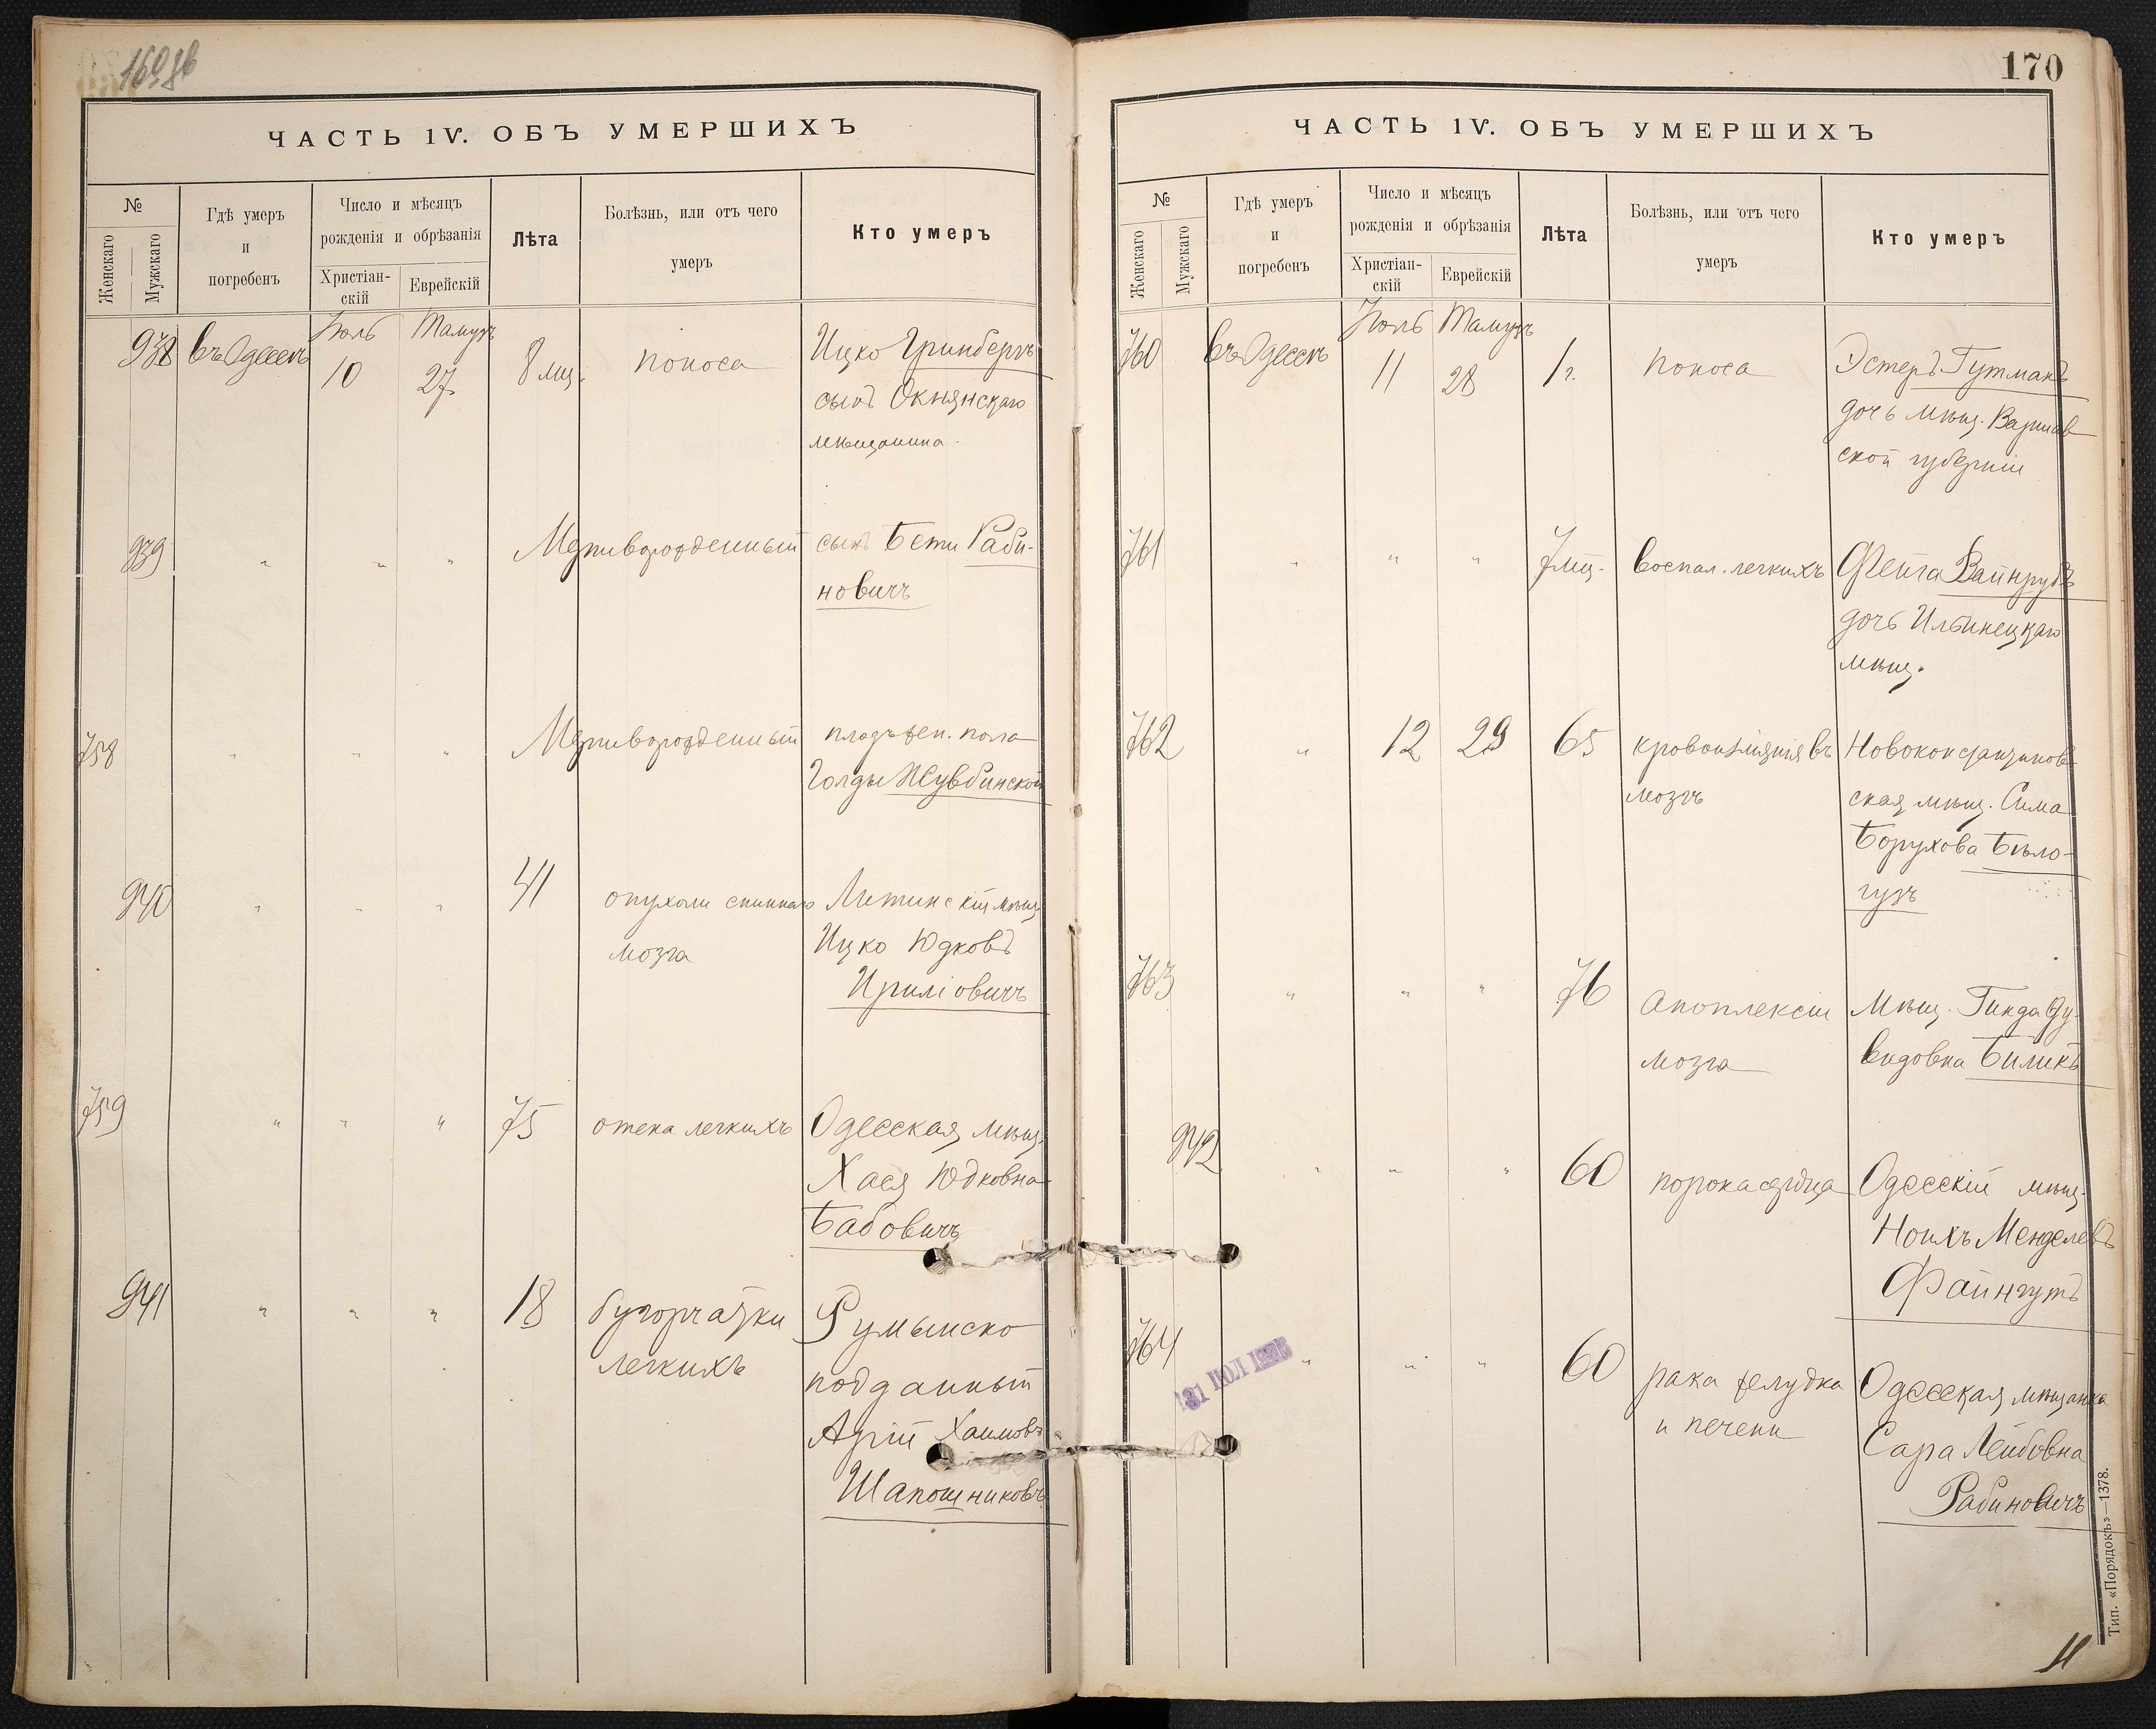 169об
ЧАСТЬ IV. ОБЪ УМЕРШИХЪ
№
Женскаго
Мужскаго
Гдѣ умеръ
и
погребенъ
Число и мѣсяцъ
рожденія и обрѣзанія
Христіан-
скій
Еврейскій
Лѣта
Болѣзнь, или отъ чего
умеръ
Кто умеръ
Іюль Тамузъ
938 въ Одессѣ 10 27 8 мц. поноса Ицко Гринбергъ
сынъ Окнянскаго
мѣщанина.
939 " " " Мертворожденный сынъ Бети Раби-
новичъ
758 " " " Мертворожденный плодъ жен. пола
Голды
940 " " " 41 опухоли спиннаго Литинскій мѣщ.
мозга Ицко Юдковъ
759 " " " 75 отека легкихъ Одесская мѣщ.
Хася Юдковна
Бабовичъ
941 " " " 18 бугорчатки Румынско
легкихъ подданный
Арій Хаимовъ
Шапошниковъ
170
ЧАСТЬ IV. ОБЪ УМЕРШИХЪ
№
Женскаго
Мужскаго
Гдѣ умеръ
и
погребенъ
Число и мѣсяцъ
рожденія и обрѣзанія
Христіан-
скій
Еврейскій
Лѣта
Болѣзнь, или отъ чего
умеръ
Кто умеръ
Іюль Тамузъ
760 въ Одессѣ 11 28 1 г. поноса Эстеръ Гутманъ
дочь мѣщ. Варшав
ской губерніи
761 " " " 7 мц. воспал. легкихъ Фейга Вайнрубъ
дочь Ильинецкаго
мѣщ.
762 " 12 29 65 кровоизліянія въ Новоконстантинов
мозгъ ская мѣщ. Сима
Борухова Бѣло-
гузъ
763 " " " 76 апоплексіи Мѣщ. Гинда Ду-
мозга видовна Биликъ
942 " " " 60 порока сердца Одесскій мѣщ.
Нойхъ Менделевъ
Файнгутъ
764 " " " 60 рака желудка Одесская мѣщанка
и печени Сара Лейбовна
Рабиновичъ
31 ІЮЛ
Тип. «Порядокъ»—1378.